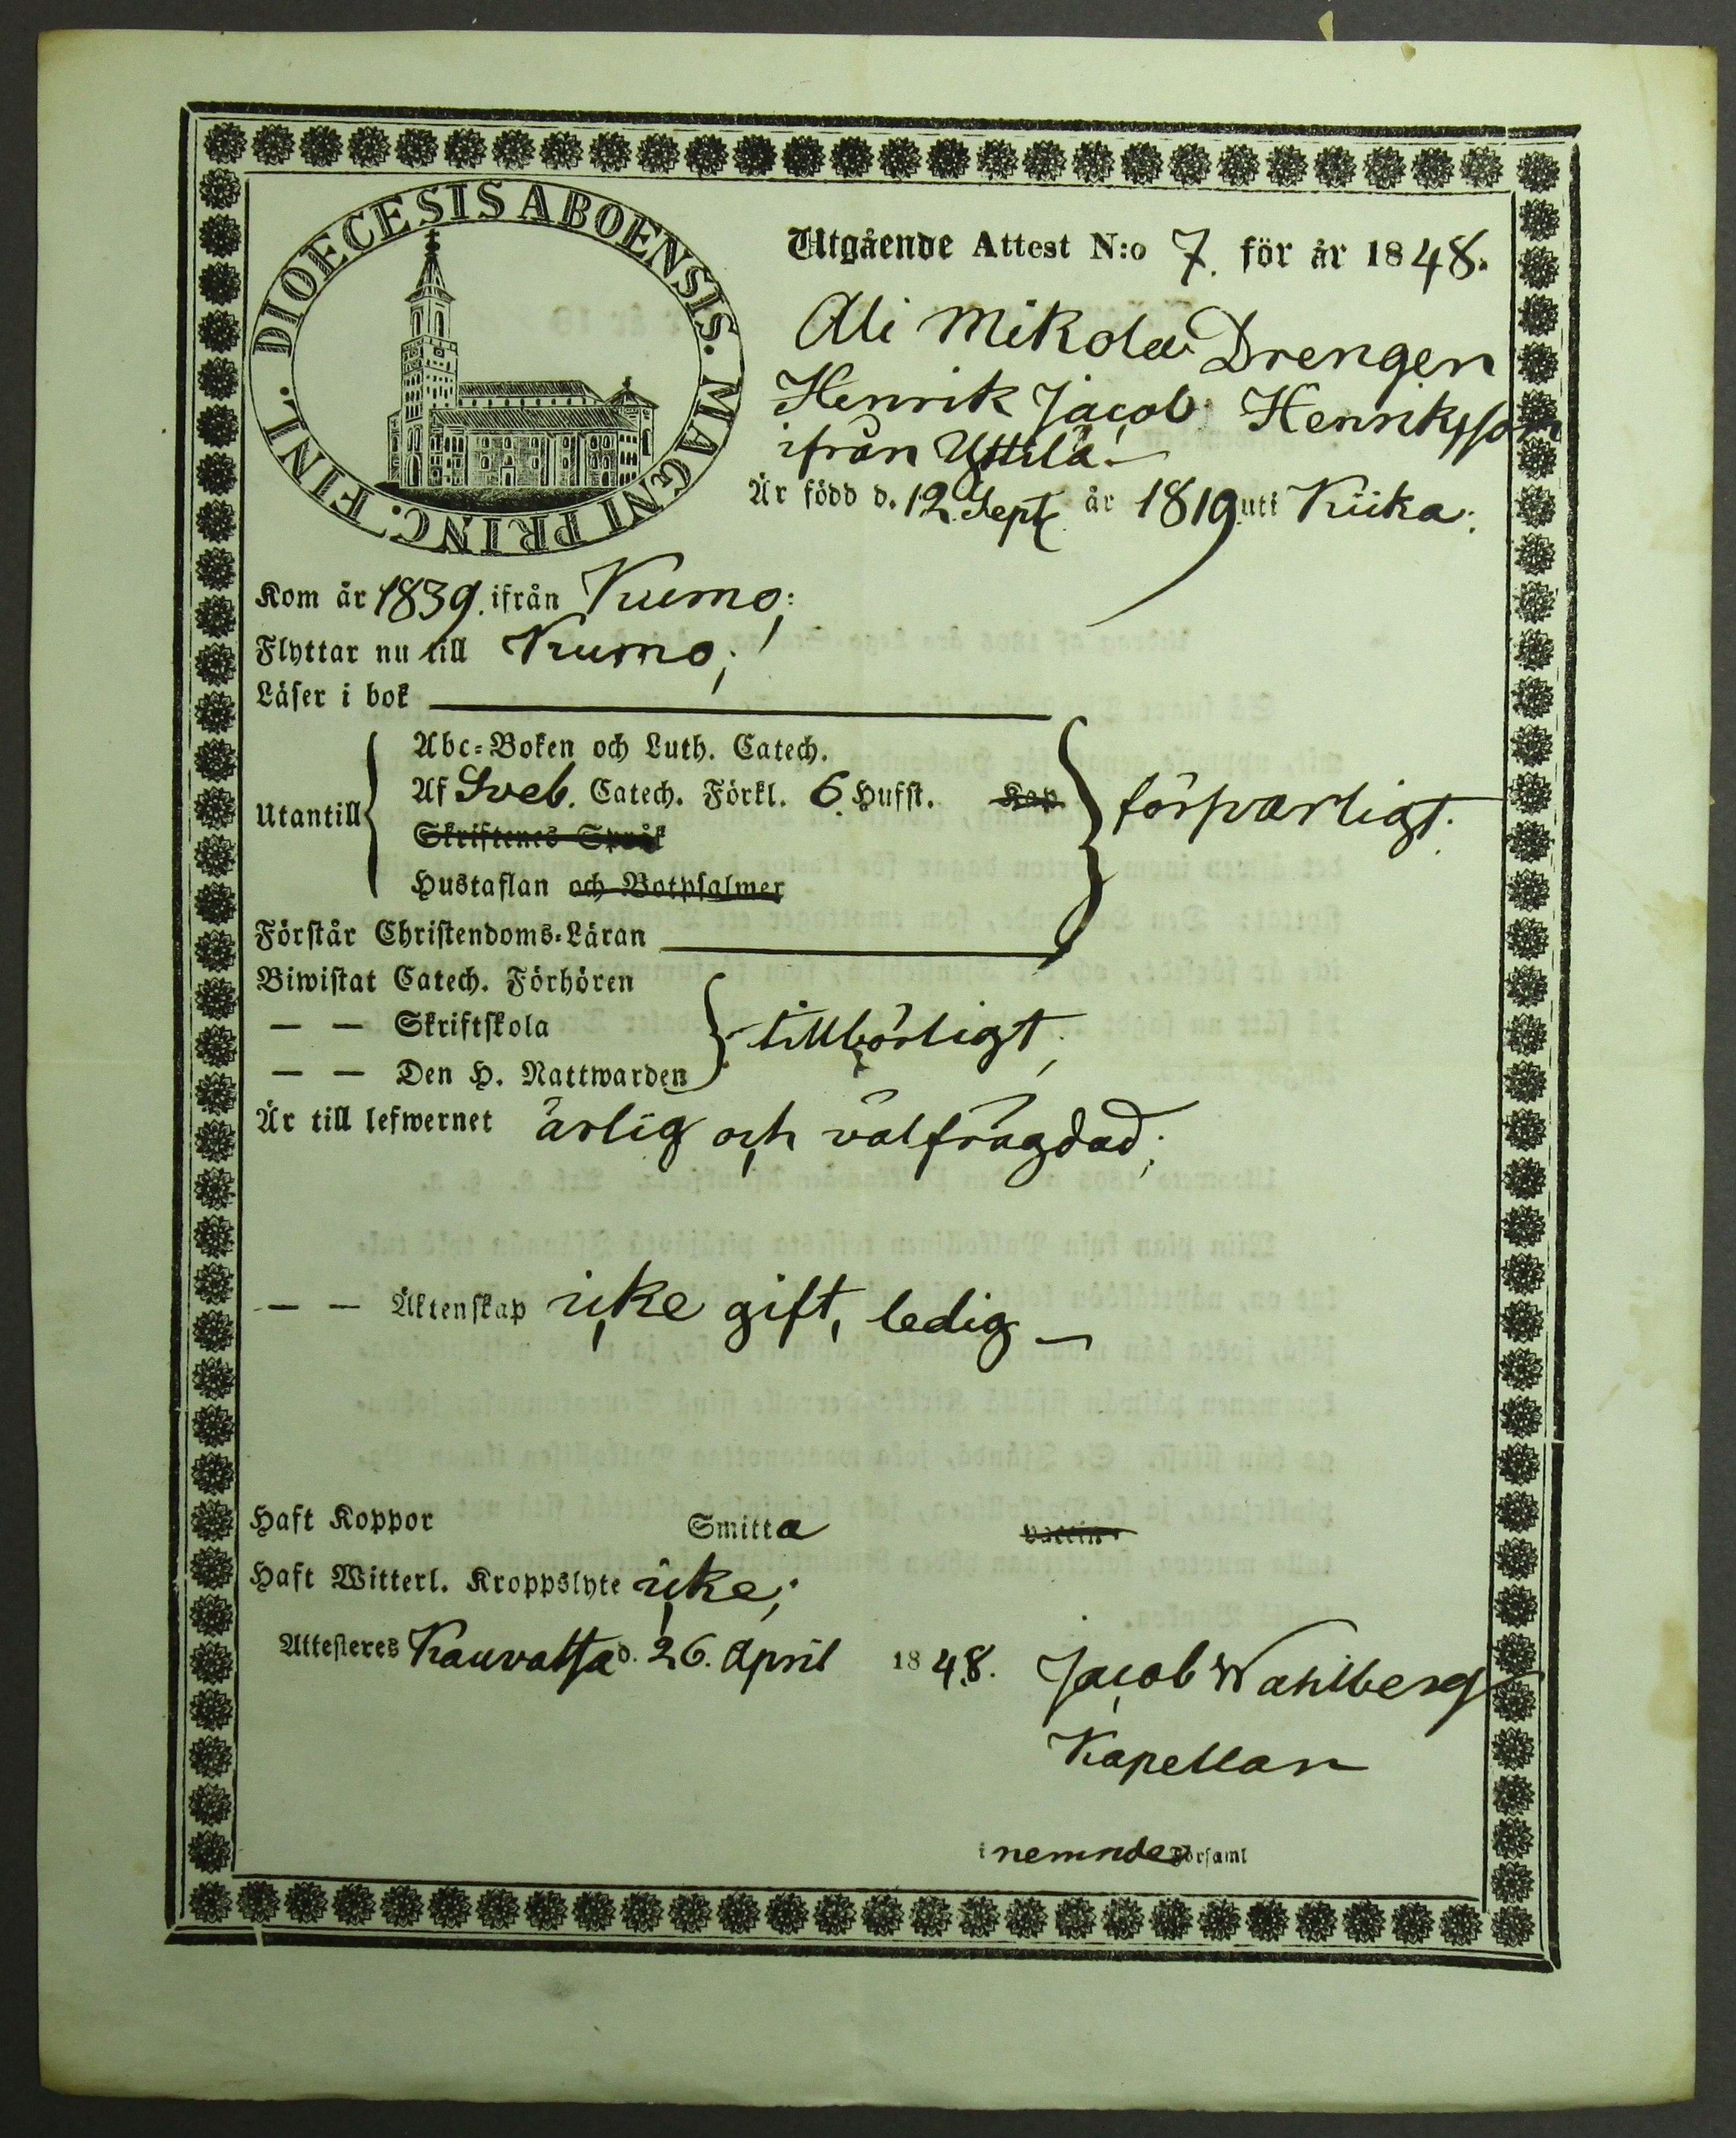 DIOECESIS ABOENSIS. MAGNI PRINC. FINL.
Utgående Attest N:o 7. för år 1848.
Ali Mikola Drengen
Henrik Jacob Henriksson
ifrån Yttilä.
Är född d. 12 Sept. år 1819 uti Kiika.
Kom år 1839. ifrån Kumo;
Flyttar nu till Kumo;
Läser i bok
Utantill
Abc-Boken och Luth. Catech.
Af Sveb. Catech. Förkl. 6 Hufst. Kap
Skriftenes Språk
Hustaflan och Botpsalmer
försvarligt.
Förstår Christendoms-Läran
Biwistat Catech. Förhören
— — Skriftskola
— — Den H. Nattwarden
tillbörligt;
Är till lefwernet ärlig och välfrägdad;
— — Äktenskap icke gift, ledig —
Haft Koppor Smitta Vaccin
Haft Witterl. Kroppslyte icke;
Attesteres Kauvatsa d. 26. April 1848. Jacob Wahlberg
Kapellan
i nemnde Församl